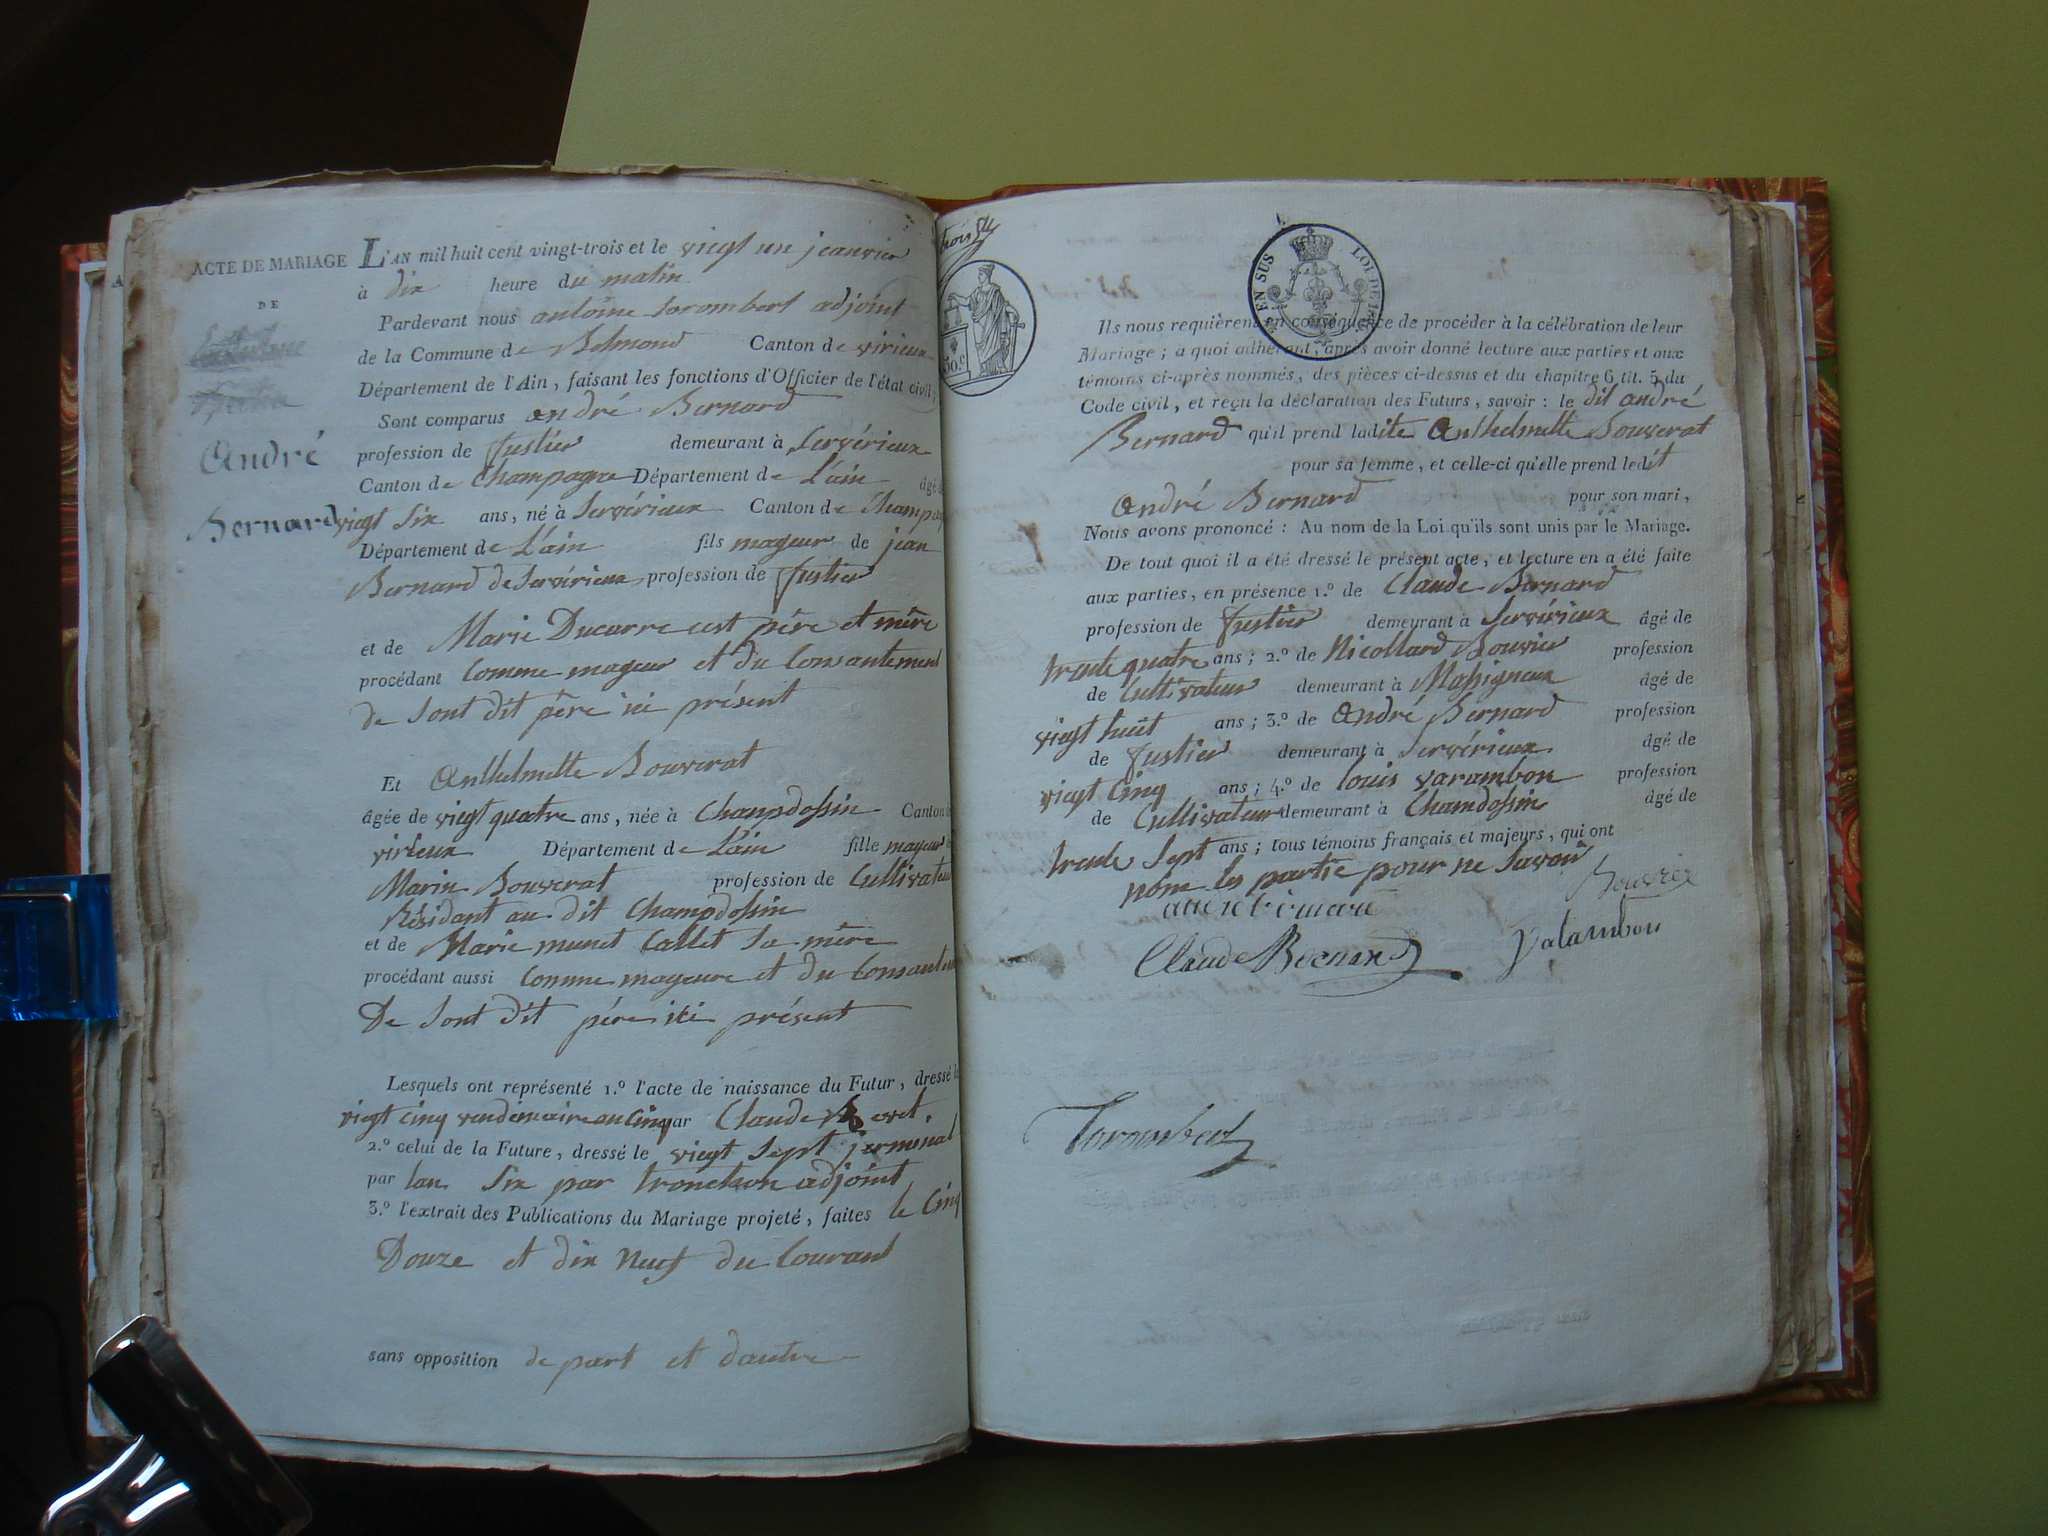 ACTE DE MARIAGE
DE
André
Bernard
L'AN mil huit cent vingt-trois et le viegt un jeanvier
à dix heure du matin
Pardevant nous antoine torombert adjoint
de la Commune de Belmond Canton de virieux
Département de l'Ain, faisant les fonctions d'Officier de l'état civil;
Sont comparus andré Bernard
profession de fustier demeurant à Servérieux
Canton de Champagne Département de L'ain âgé de
viegt six ans, né à Servérieux Canton de Champag
Département de L'ain fils mageur de jean
Bernard de Servérieux profession de fustier
et de Marie Ducarre cest père et mère
procédant Comme mageur et du Consantement
de sont dit père ici présent
Et Anthelmette Bouverat
âgée de viegt quatre ans, née à Champdossin Canton de
virieux Département de L'ain fille mageur
Marin Bouverat profession de Cultivateur
Résidant au dit Champdossin
et de Marie munet Callet sa mère
procédant aussi Comme mageure et du Consantem
De sont dit père ici présent
Lesquels ont représenté 1.º l'acte de naissance du Futur, dressé le
viegt cinq vendémiaire an Cinq par Claude
2.º celui de la Future, dressé le viegt sept jermenal
par lan six par tronchon adjoint
3.º l'extrait des Publications du Mariage projeté, faites le Cinq
Douze et dix neuf du Courant
sans opposition de part et dautre
trois
50.c
EN SUS LOI DE
Ils nous requièrent en conséquence de procéder à la célébration de leur
Mariage; a quoi adhérant, après avoir donné lecture aux parties et aux
témoins ci-après nommés, des pièces ci-dessus et du chapitre 6, tit. 5 du
Code civil, et reçu la déclaration des Futurs, savoir: le dit andré
Bernard qu'il prend ladite Anthelmette Bouverat
pour sa femme, et celle-ci qu'elle prend ledit
André Bernard pour son mari,
Nous avons prononcé: Au nom de la Loi qu'ils sont unis par le Mariage.
De tout quoi il a été dressé le présent acte, et lecture en a été faite
aux parties, en présence 1.º de Claude Bernard
profession de fustier demeurant à Servérieux âgé de
trente quatre ans; 2.º de Nicollard Bouvier profession
de Cultivateur demeurant à Massignieux âgé de
viegt huit ans; 3.º de André Bernard profession
de fustier demeurant à Servérieux âgé de
viegt Cinq ans; 4.º de louis varambon profession
de Cultivateur demeurant à Chamdossin âgé de
trente sept ans; tous témoins français et majeurs, qui ont
non les partie pour ne savoir
Bouvier
Claude Bernard
Valambon
Torombert